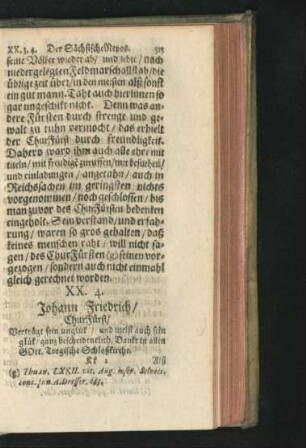 XX. 3. 4. Der Sächsische Nepos. 515
seine Völker wieder ab/ und lebte/ nach
niedergelegten Feldmarschallstab/ die
übrige zeit über/ in den meisten als sonst
ein gut mann. Täht auch hierinnen so
gar ungeschikt nicht. Denn was an-
dere Fürsten durch strenge und ge-
walt zu tuhn vermocht/ das erhielt
der ChurFürst durch freundligkeit.
Dahero ward ihm auch alle ehre mit
titeln/ mit freudigē zuruffen/ mit besuchen/
und einladungen/ angetahn/ auch in
Reichssachen im geringsten nichtes
vorgenommen/ noch geschlossen/ bis
man zuvor des ChurFürsten bedenken
eingeholt. Sein verstand/ und erfah-
rung/ waren so gros gehalten/ daß
keines menschen raht/ will nicht sa-
gen/ des ChurFürsten (g) seinen vor-
gezogen/ sondern auch nicht einmahl
gleich gerechnet worden.
XX. 4.
Johann Friedrich/
ChurFürst/
Verträgt sein unglük/ und meist auch sein
glük/ ganz bescheidenlich. Dankt in allen
GOtt. Torgische Schloßkirche.
Kk 2 Als
(g) Thuan. LXXII. vit. Aug.